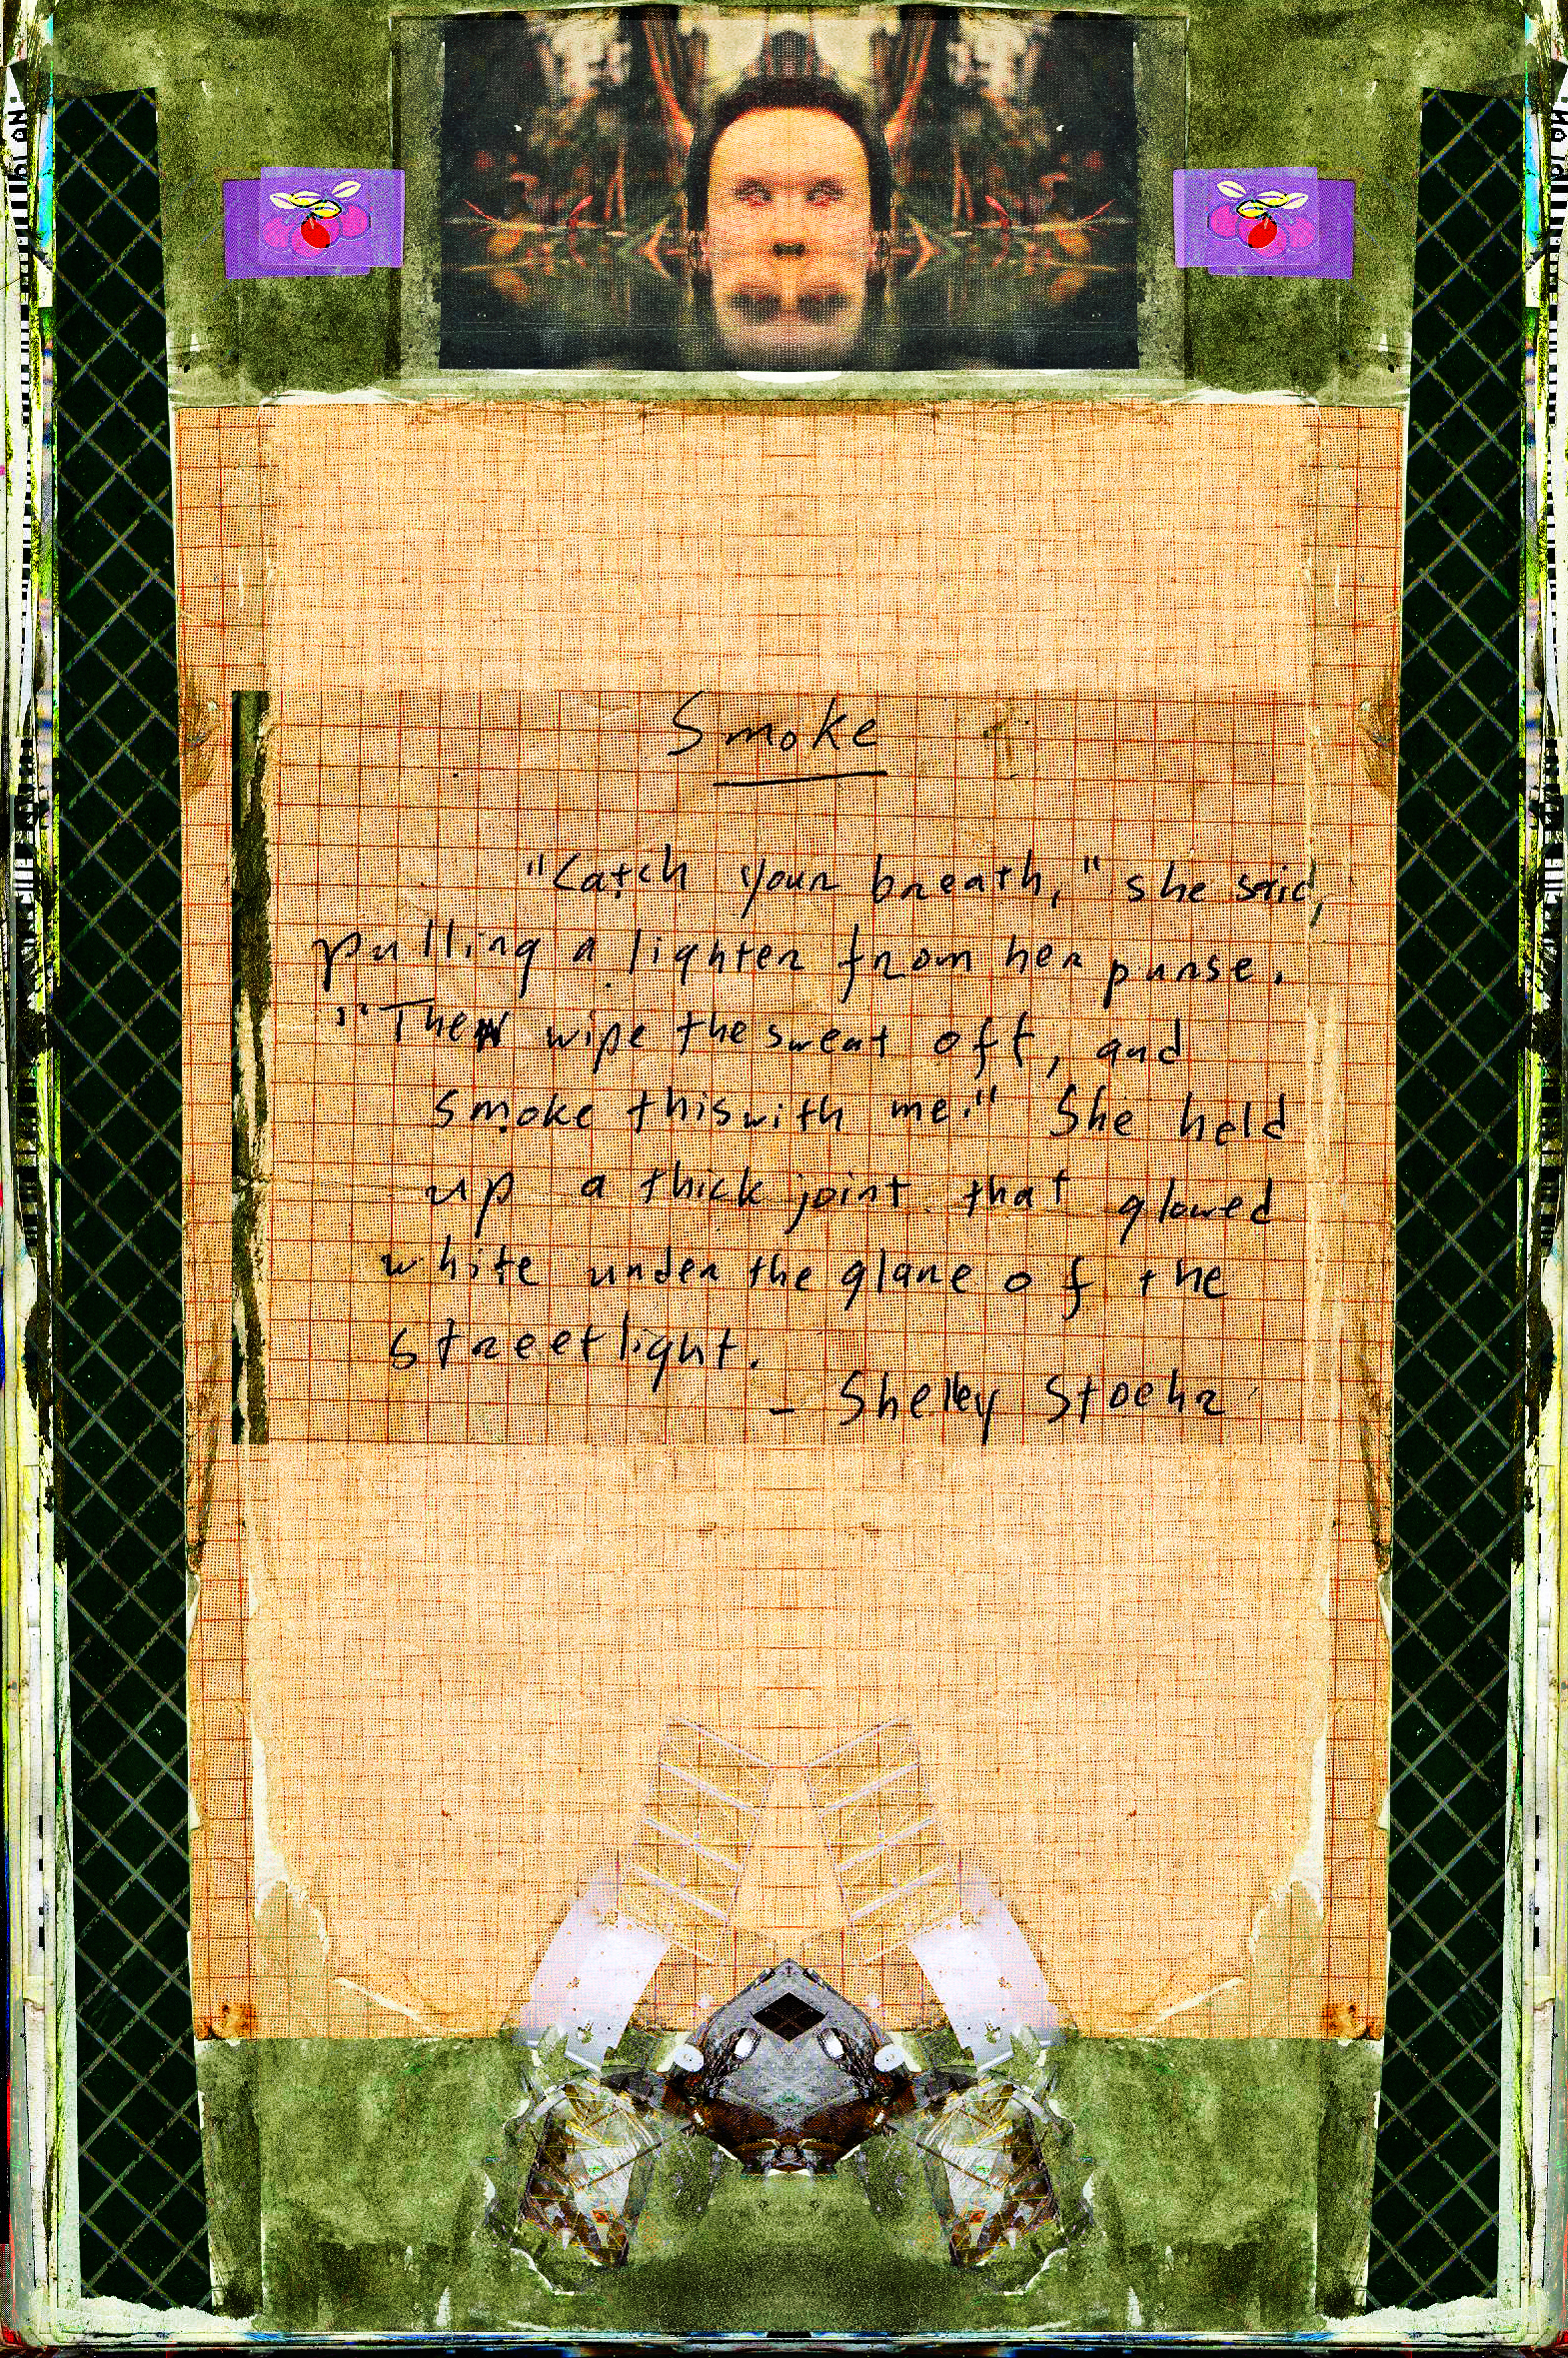 Smoke
"Catch your breath," she said,
pulling a lighter from her purse.
"Then wipe the sweat off, and
smoke this with me." She held
up a thick joint that glowed
white under the glare of the
streetlight.
- Shelley Stoehr